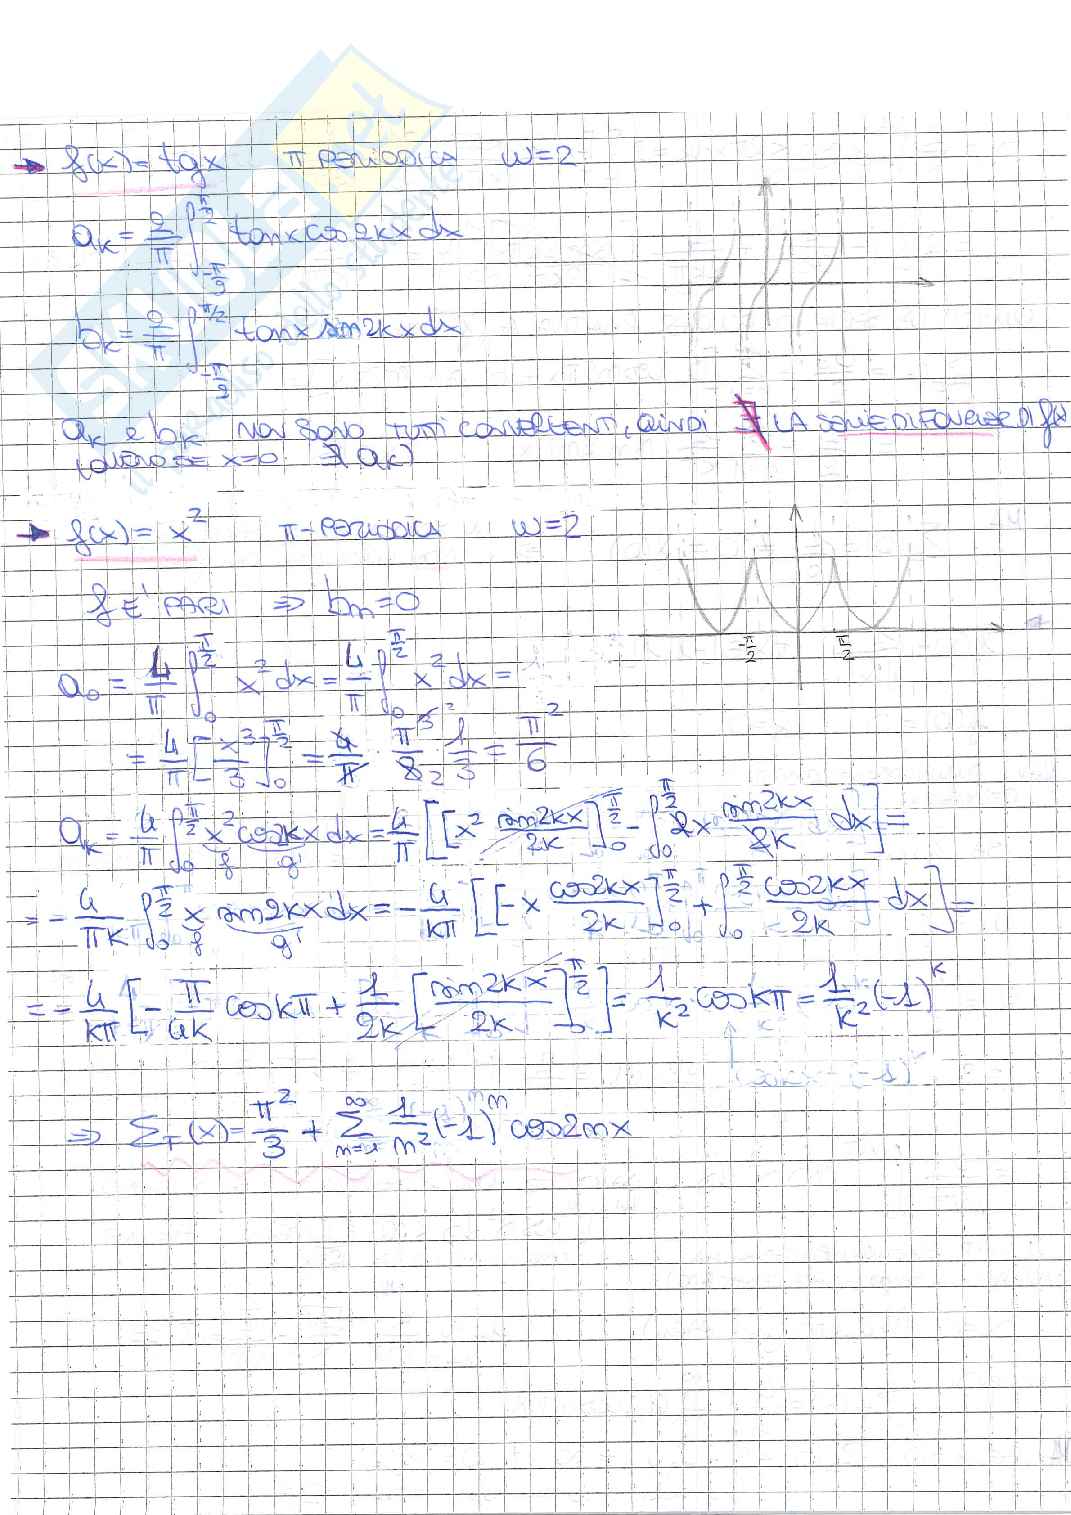 → f(x) = tgx π PERIODICA W=2
a_k = 2/π ∫_{-π/2}^{π/2} tanx cos2kx dx
b_k = 2/π ∫_{-π/2}^{π/2} tanx sin2kx dx
a_k e b_k NON SONO TUTTI CONVERGENTI, QUINDI ∄ LA SERIE DI FOURIER DI f(x)
(OVVERO SE x=0 ∄ a_k)
→ f(x) = x² π-PERIODICA W=2
f E' PARI ⇒ b_n = 0
-π/2 π/2
a_0 = 4/π ∫_0^{π/2} x² dx = 4/π ∫_0^{π/2} x² dx =
= 4/π [x³/3]_0^{π/2} = 4/π · π³/8 · 1/3 = π²/6
a_k = 4/π ∫_0^{π/2} x² cos2kx dx = 4/π [[x² sin2kx/2k]_0^{π/2} - ∫_0^{π/2} 2x sin2kx/2k dx] =
f g'
= -4/πk ∫_0^{π/2} x sin2kx dx = -4/kπ [[-x cos2kx/2k]_0^{π/2} + ∫_0^{π/2} cos2kx/2k dx] =
f g'
= -4/kπ [-π/4k coskπ + 1/2k [sin2kx/2k]_0^{π/2}] = 1/k² coskπ = 1/k² (-1)^k
⇒ Σ_T(x) = π²/3 + Σ_{n=1}^∞ 1/n² (-1)^n cos2nx